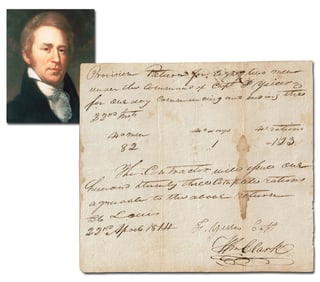 Provision Return for Eighty two men
under the command of Capt
for one day Commencing and ending this
23rd Inst
82 1 123
The Contractor will issue one
hundred & twenty three Complete rations
agreeable to the above return
St Louis
23rd April 1814 Capt
Wm Clark